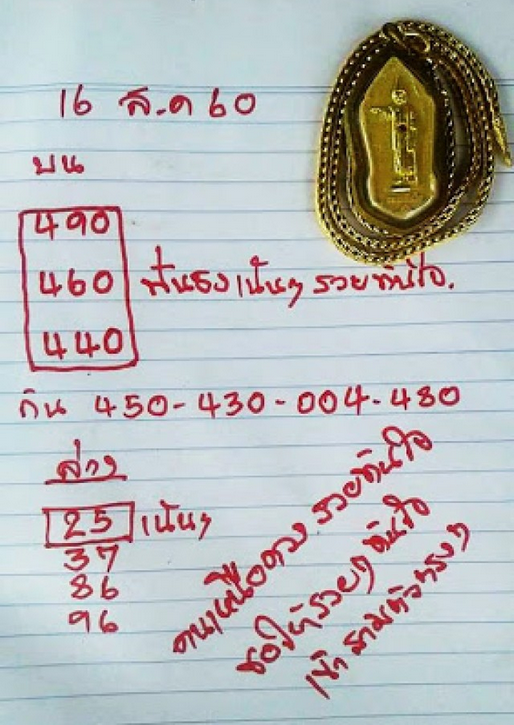 16 ส.ค 60
บน
490
460 ฟันธง เน้นๆ รวยทันใจ.
440
กัน 450-430-004-480
ล่าง
25 เน้นๆ
37
86
96
คนเหนือดวง รวยทันใจ
ขอให้รวยๆ ทันใจ
เข้า สามตัวตรงๆ